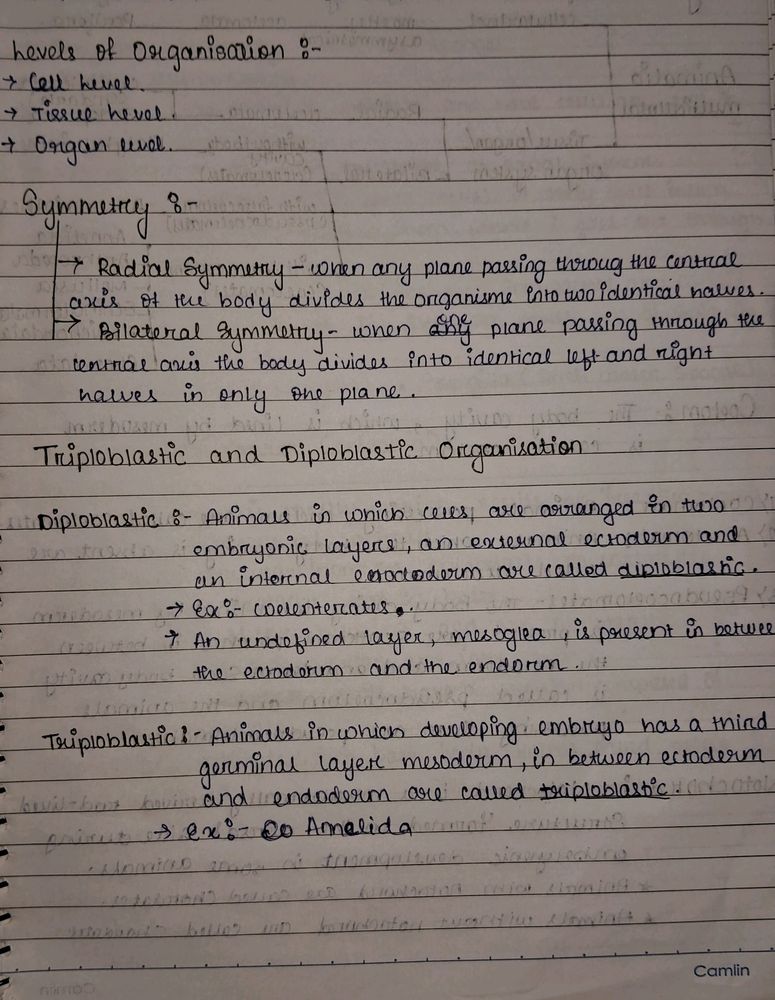 Levels of Organisation :-
→ Cell Level.
→ Tissue Level.
→ Organ level.
Symmetry :-
→ Radial Symmetry - when any plane passing throug the central
axis of the body divides the organisme into two identical halves.
→ Bilateral Symmetry - when one plane passing through the
central axis the body divides into identical left and right
halves in only one plane.
Triploblastic and Diploblastic Organisation
Diploblastic :- Animals in which cells, are arranged in two
embryonic layers, an external ectoderm and
an internal are called diploblastic.
→ Ex :- coelenterates.
→ An undefined layer, mesoglea, is present in betwee
the ectoderm and the endorm.
Triploblastic :- Animals in which developing embryo has a third
germinal layer mesoderm, in between ectoderm
and endoderm are called triploblastic.
→ Ex :- Annelida
Camlin